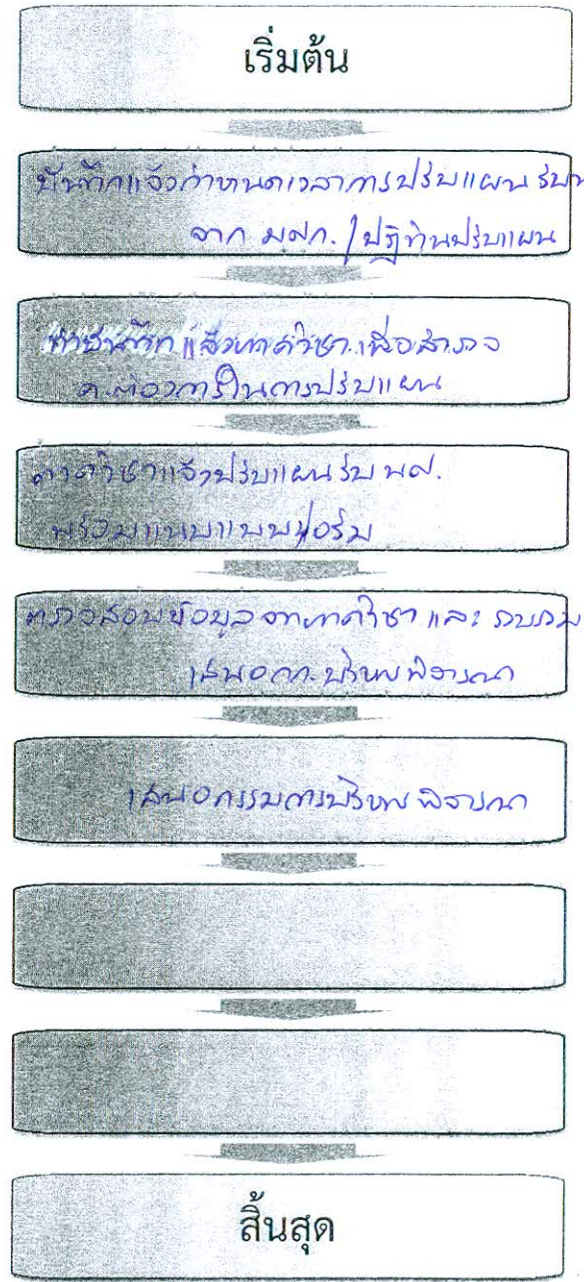 เริ่มต้น
บันทึกแจ้งกำหนดเวลาการปรับแผนรับ
จาก มสก. / ปฏิทินปรับแผน
ทำบันทึกแจ้งภาควิชาเพื่อสำรวจ
ค.ต้องการในการปรับแผน
ภาควิชาแจ้งปรับแผนรับ นศ.
พร้อมแนบแบบฟอร์ม
ตรวจสอบข้อมูลจากภาควิชา และ รวบรวม
เสนอ กก. บริหารพิจารณา
เสนอกรรมการบริหารพิจารณา
สิ้นสุด